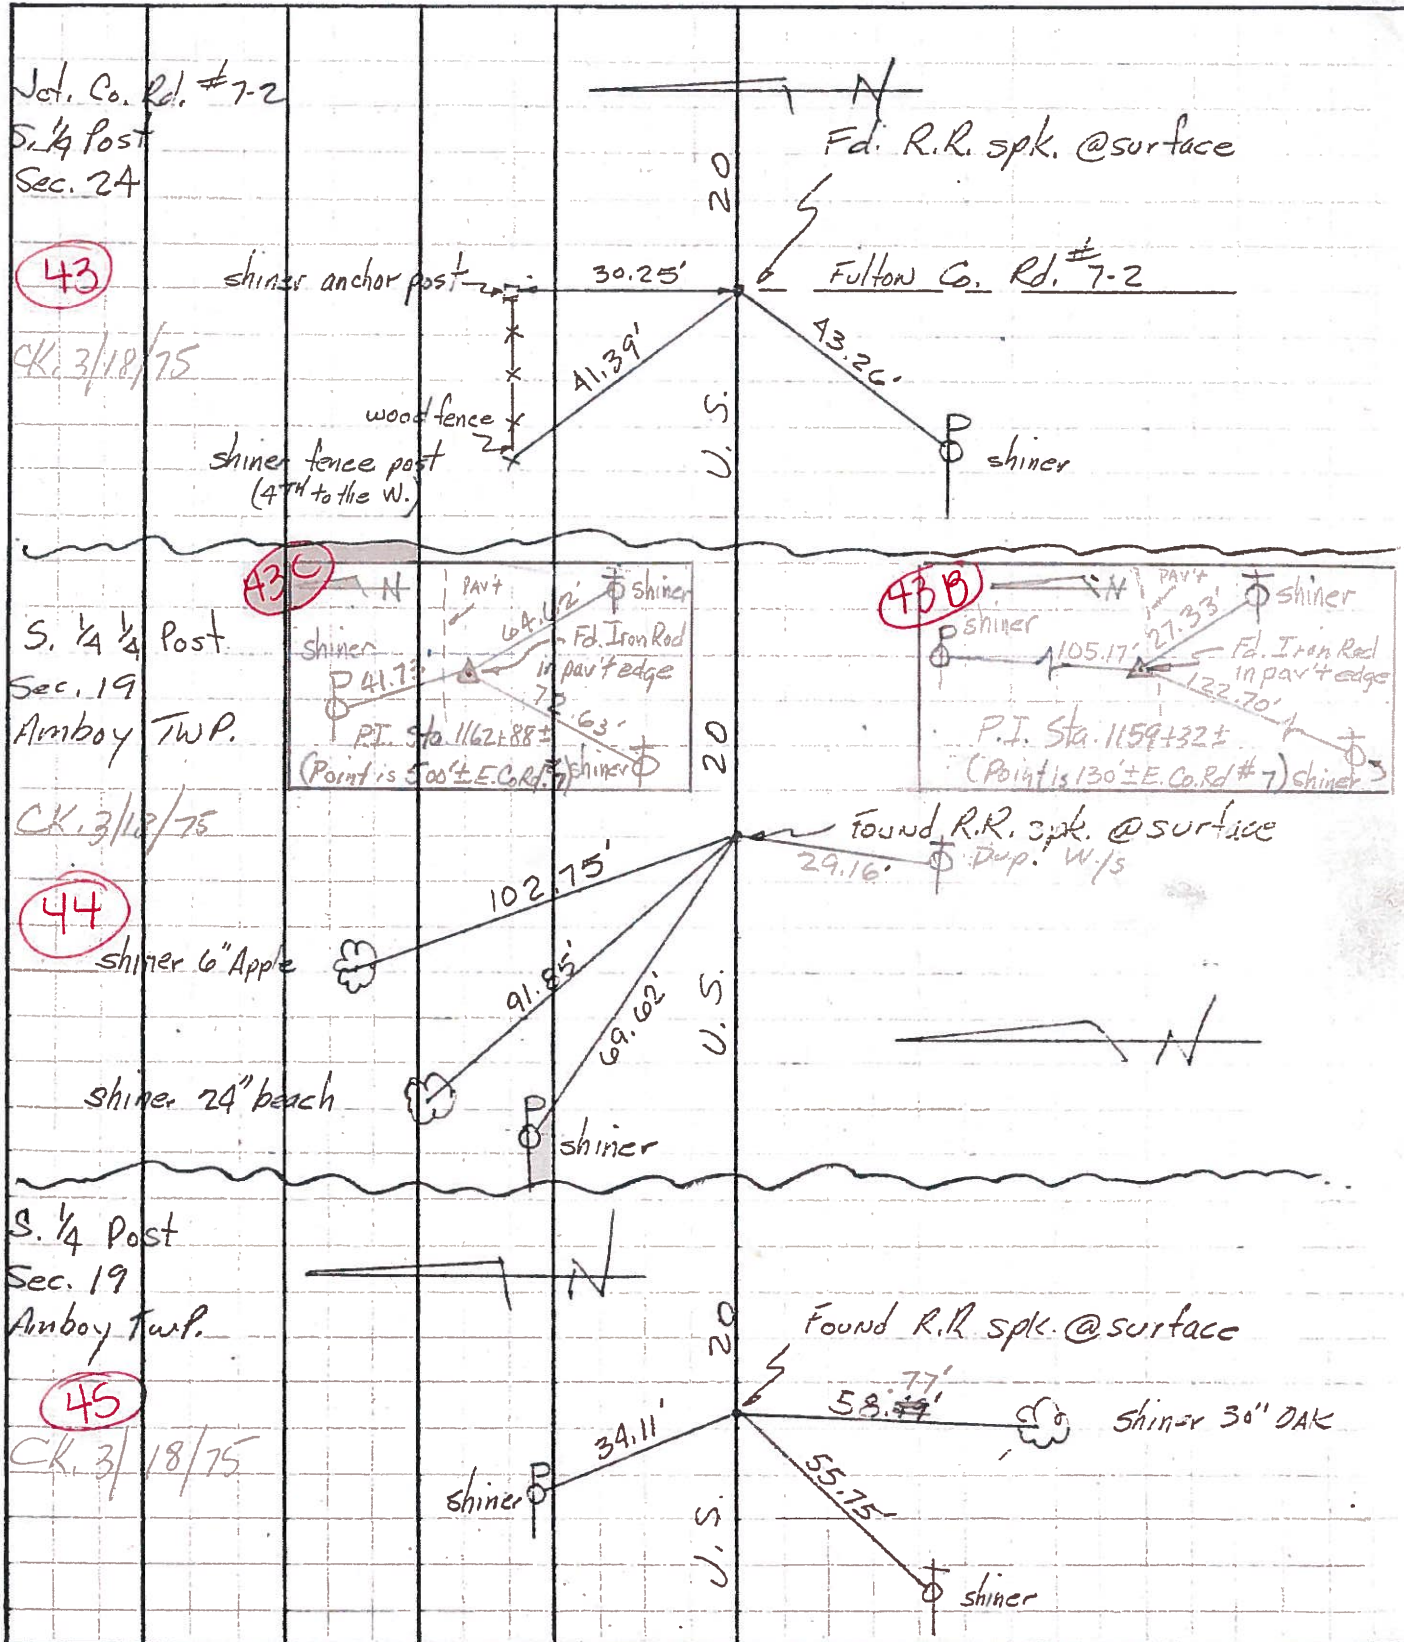 Jct. Co. Rd. #7-2
S. 1/4 Post
Sec. 24
43
CK. 3/18/75
N
Fd. R.R. spk. @surface
U.S. 20
shiner anchor post
30.25'
Fulton Co. Rd. #7-2
41.39'
43.26'
wood fence
shiner fence post
(4TH to the W.)
P
shiner
43C
N
PAV'T
shiner
64.62'
shiner
Fd. Iron Rod
in pav't edge
P
41.73
72.63'
P.I. Sta. 1162+88±
(Point is 500'± E. Co Rd. #7)
shiner
43B
N
PAV'T
shiner
shiner
P
105.17'
27.33'
Fd. Iron Rod
in pav't edge
122.70'
P.I. Sta. 1159+32±
(Point is 130'± E. Co. Rd #7)
shiner
S. 1/4 1/4 Post
Sec. 19
Amboy TWP.
CK. 3/18/75
44
U.S. 20
Found R.R. spk. @surface
29.16'
Dup. W/s
102.75'
shiner 6" Apple
91.85'
69.62'
shiner 24" beach
P
shiner
N
S. 1/4 Post
Sec. 19
Amboy Twp.
45
CK. 3/18/75
N
U.S. 20
Found R.R. spk. @surface
.77'
58.49'
Shiner 30" OAK
34.11'
shiner
P
55.75'
shiner